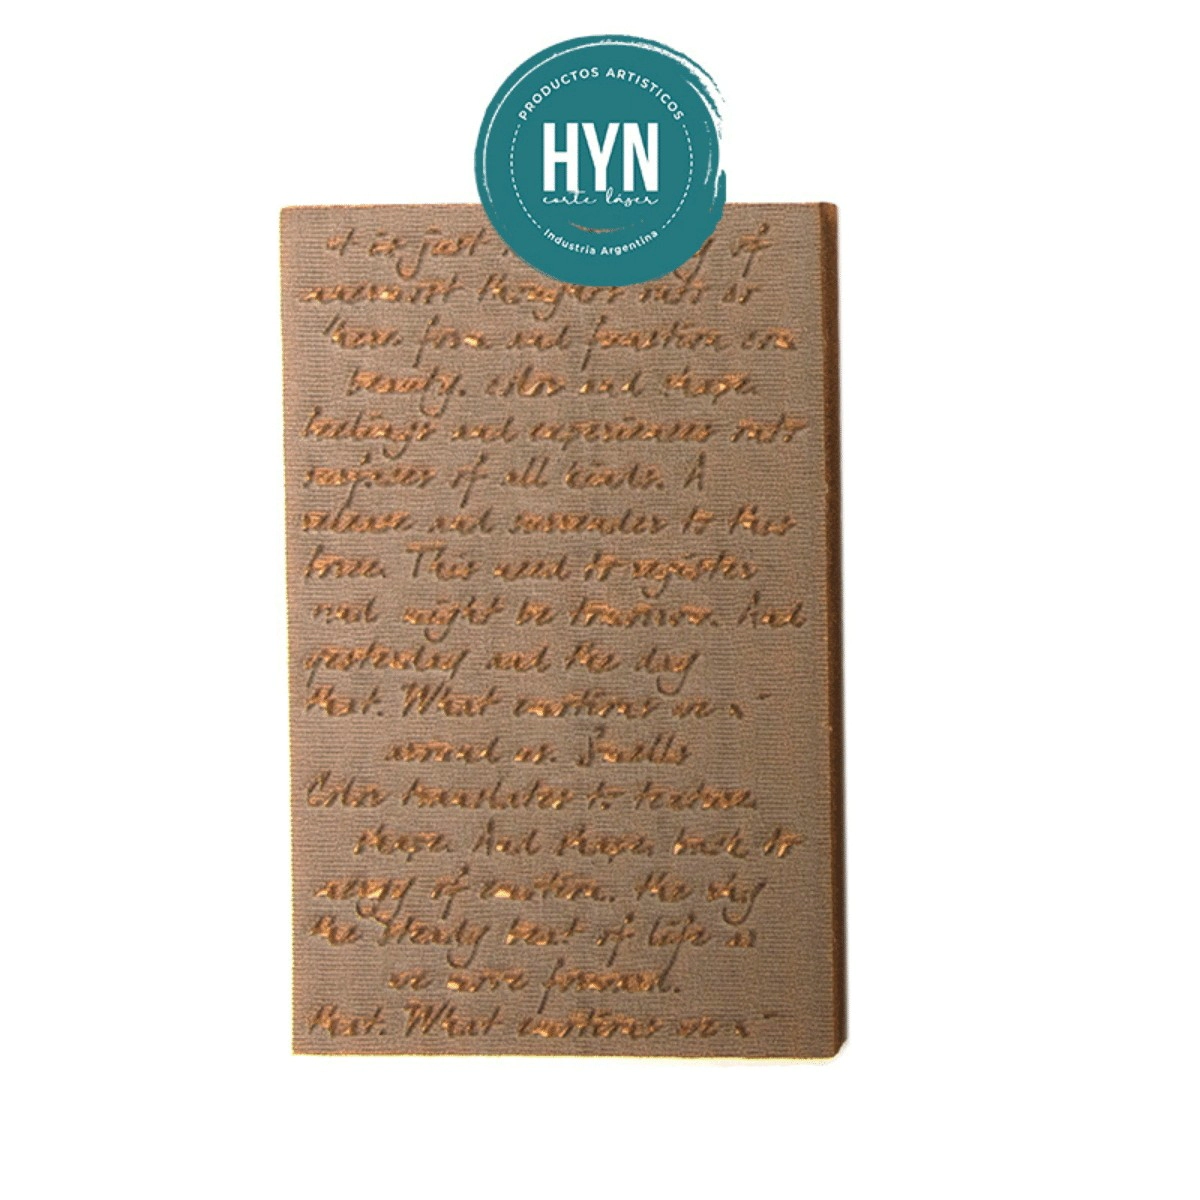 PRODUCTOS ARTISTICOS
HYN
corte láser
Industria Argentina
it is just of
innermost thoughts into or
form and function
beauty. color and shape.
feelings and experiences into
surfaces of all kinds. A
release and surrender to this
force. This need to register
and might be tomorrow. And
yesterday and the day
that. What emotions we
around us. Smells
Color translates to texture.
shape. And shape, back to
energy of emotion. the
the steady beat of life as
we move forward.
that. What emotions we